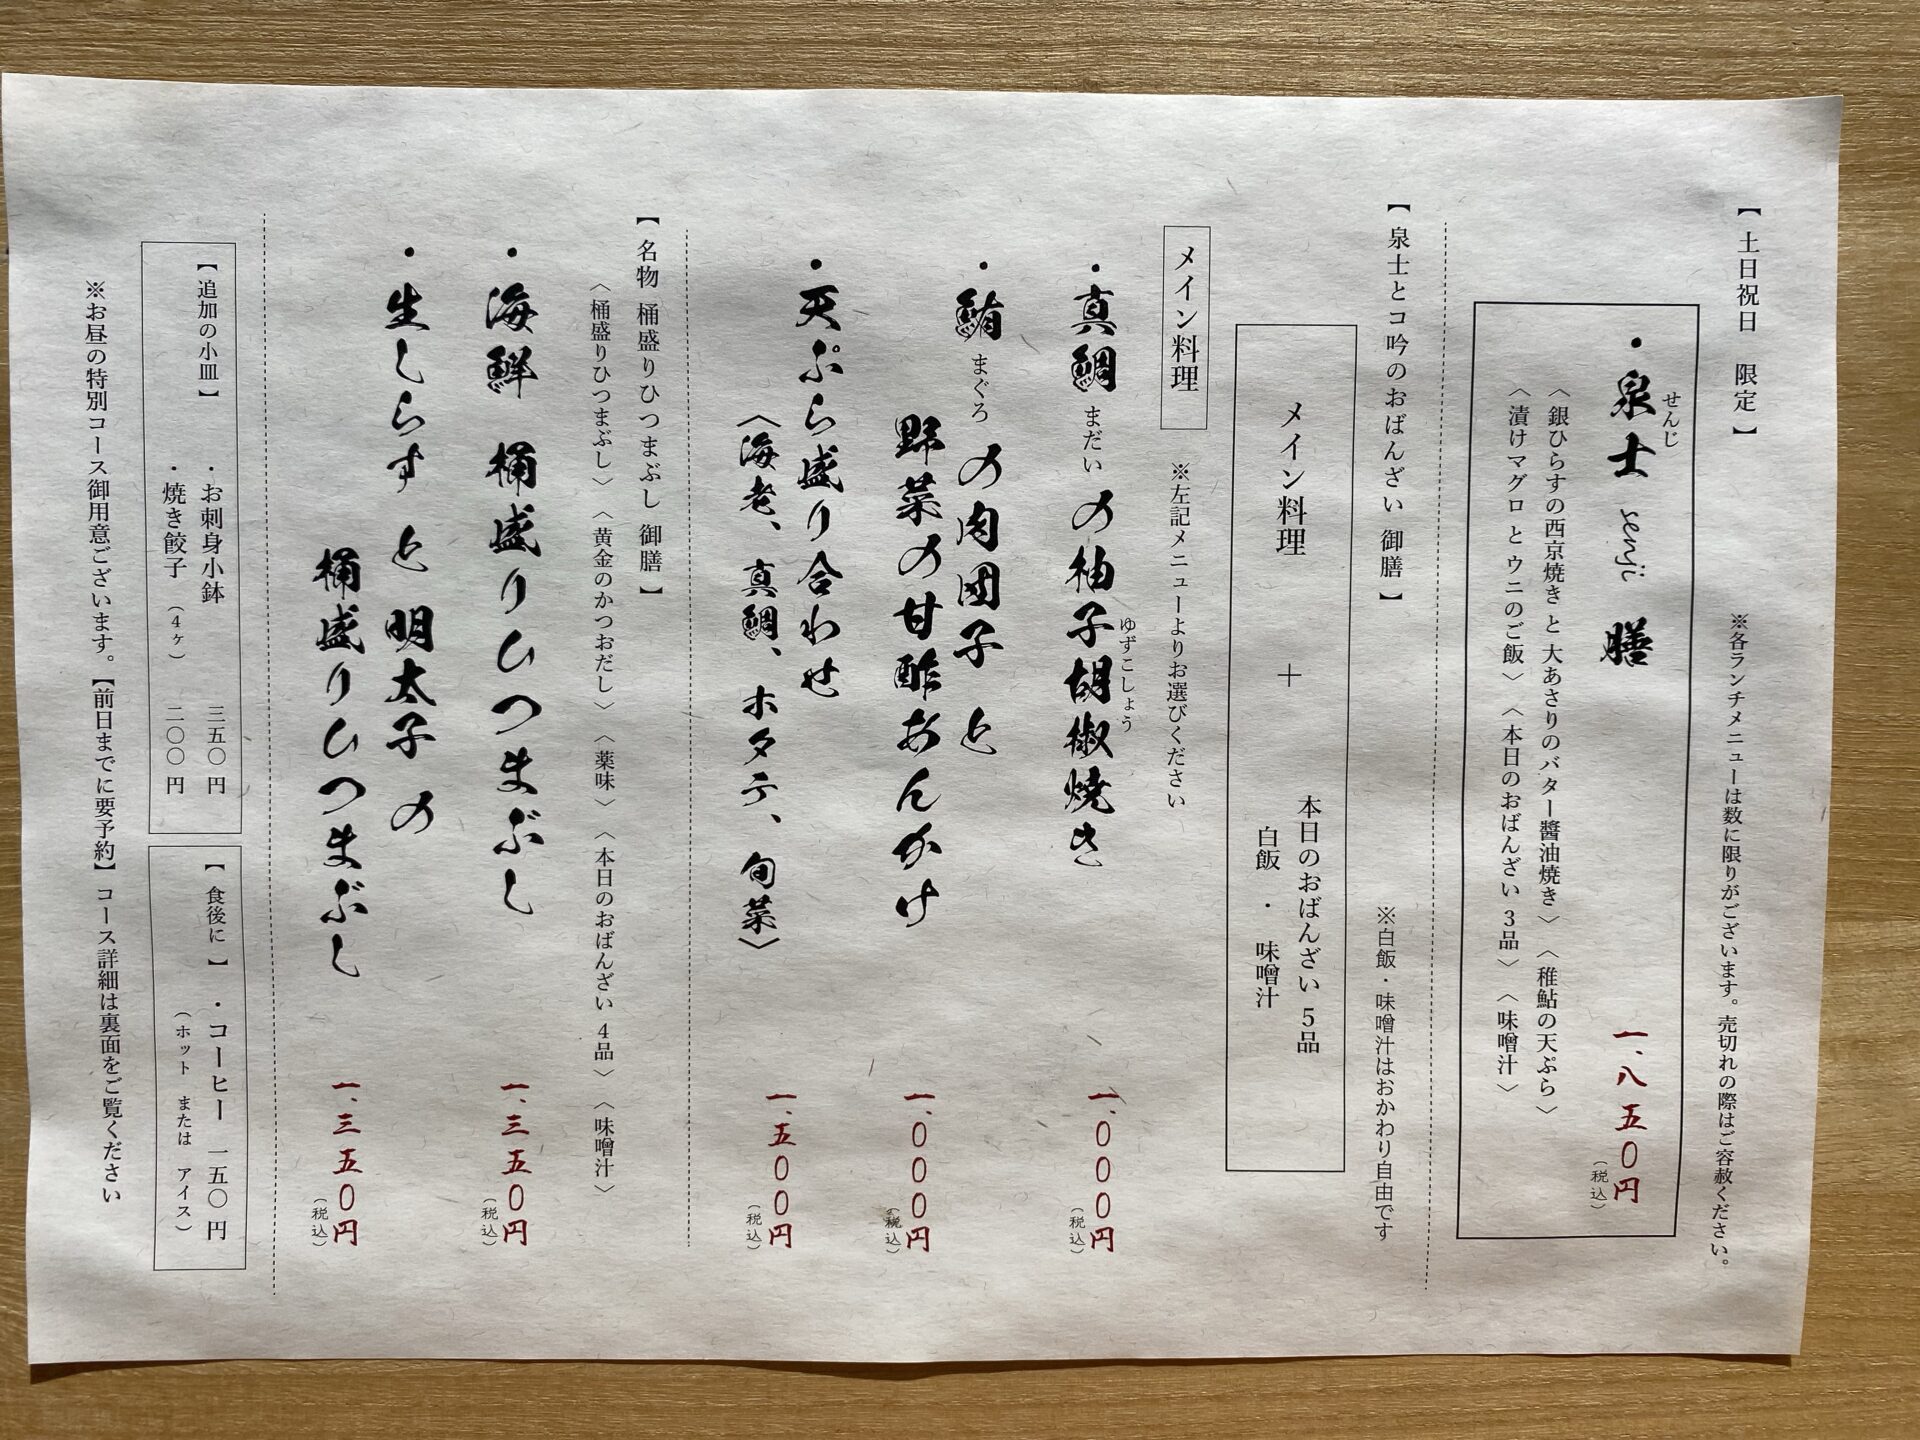 【 土日祝日　限定 】
※各ランチメニューは数に限りがございます。売切れの際はご容赦ください。
・泉士 senji 膳
せんじ
一、八五〇円
（税込）
〈 銀ひらすの西京焼き と 大あさりのバター醬油焼き 〉〈 稚鮎の天ぷら 〉
〈 漬けマグロ と ウニのご飯 〉〈 本日のおばんざい 3品 〉〈 味噌汁 〉
【 泉士とコ吟のおばんざい 御膳 】
※白飯・味噌汁はおかわり自由です
メイン料理　＋　本日のおばんざい 5品
白飯 ・ 味噌汁
メイン料理
※左記メニューよりお選びください
・真鯛 まだい の柚子胡椒焼き
ゆずこしょう
一、〇〇〇円
（税込）
・鮪 まぐろ の肉団子 と
野菜の甘酢あんかけ
一、〇〇〇円
（税込）
・天ぷら盛り合わせ
〈海老、真鯛、ホタテ、旬菜〉
一、五〇〇円
（税込）
【 名物 桶盛りひつまぶし 御膳 】
〈 桶盛りひつまぶし 〉〈 黄金のかつおだし 〉〈 薬味 〉〈 本日のおばんざい 4品 〉〈 味噌汁 〉
・海鮮 桶盛りひつまぶし
一、三五〇円
（税込）
・生しらす と 明太子 の
桶盛りひつまぶし
一、三五〇円
（税込）
【 追加の小皿 】
・お刺身小鉢　三五〇円
・焼き餃子（4ヶ）　二〇〇円
【 食後に 】
・コーヒー 一五〇円
（ホット または アイス）
※お昼の特別コース御用意ございます。【前日までに要予約】コース詳細は裏面をご覧ください